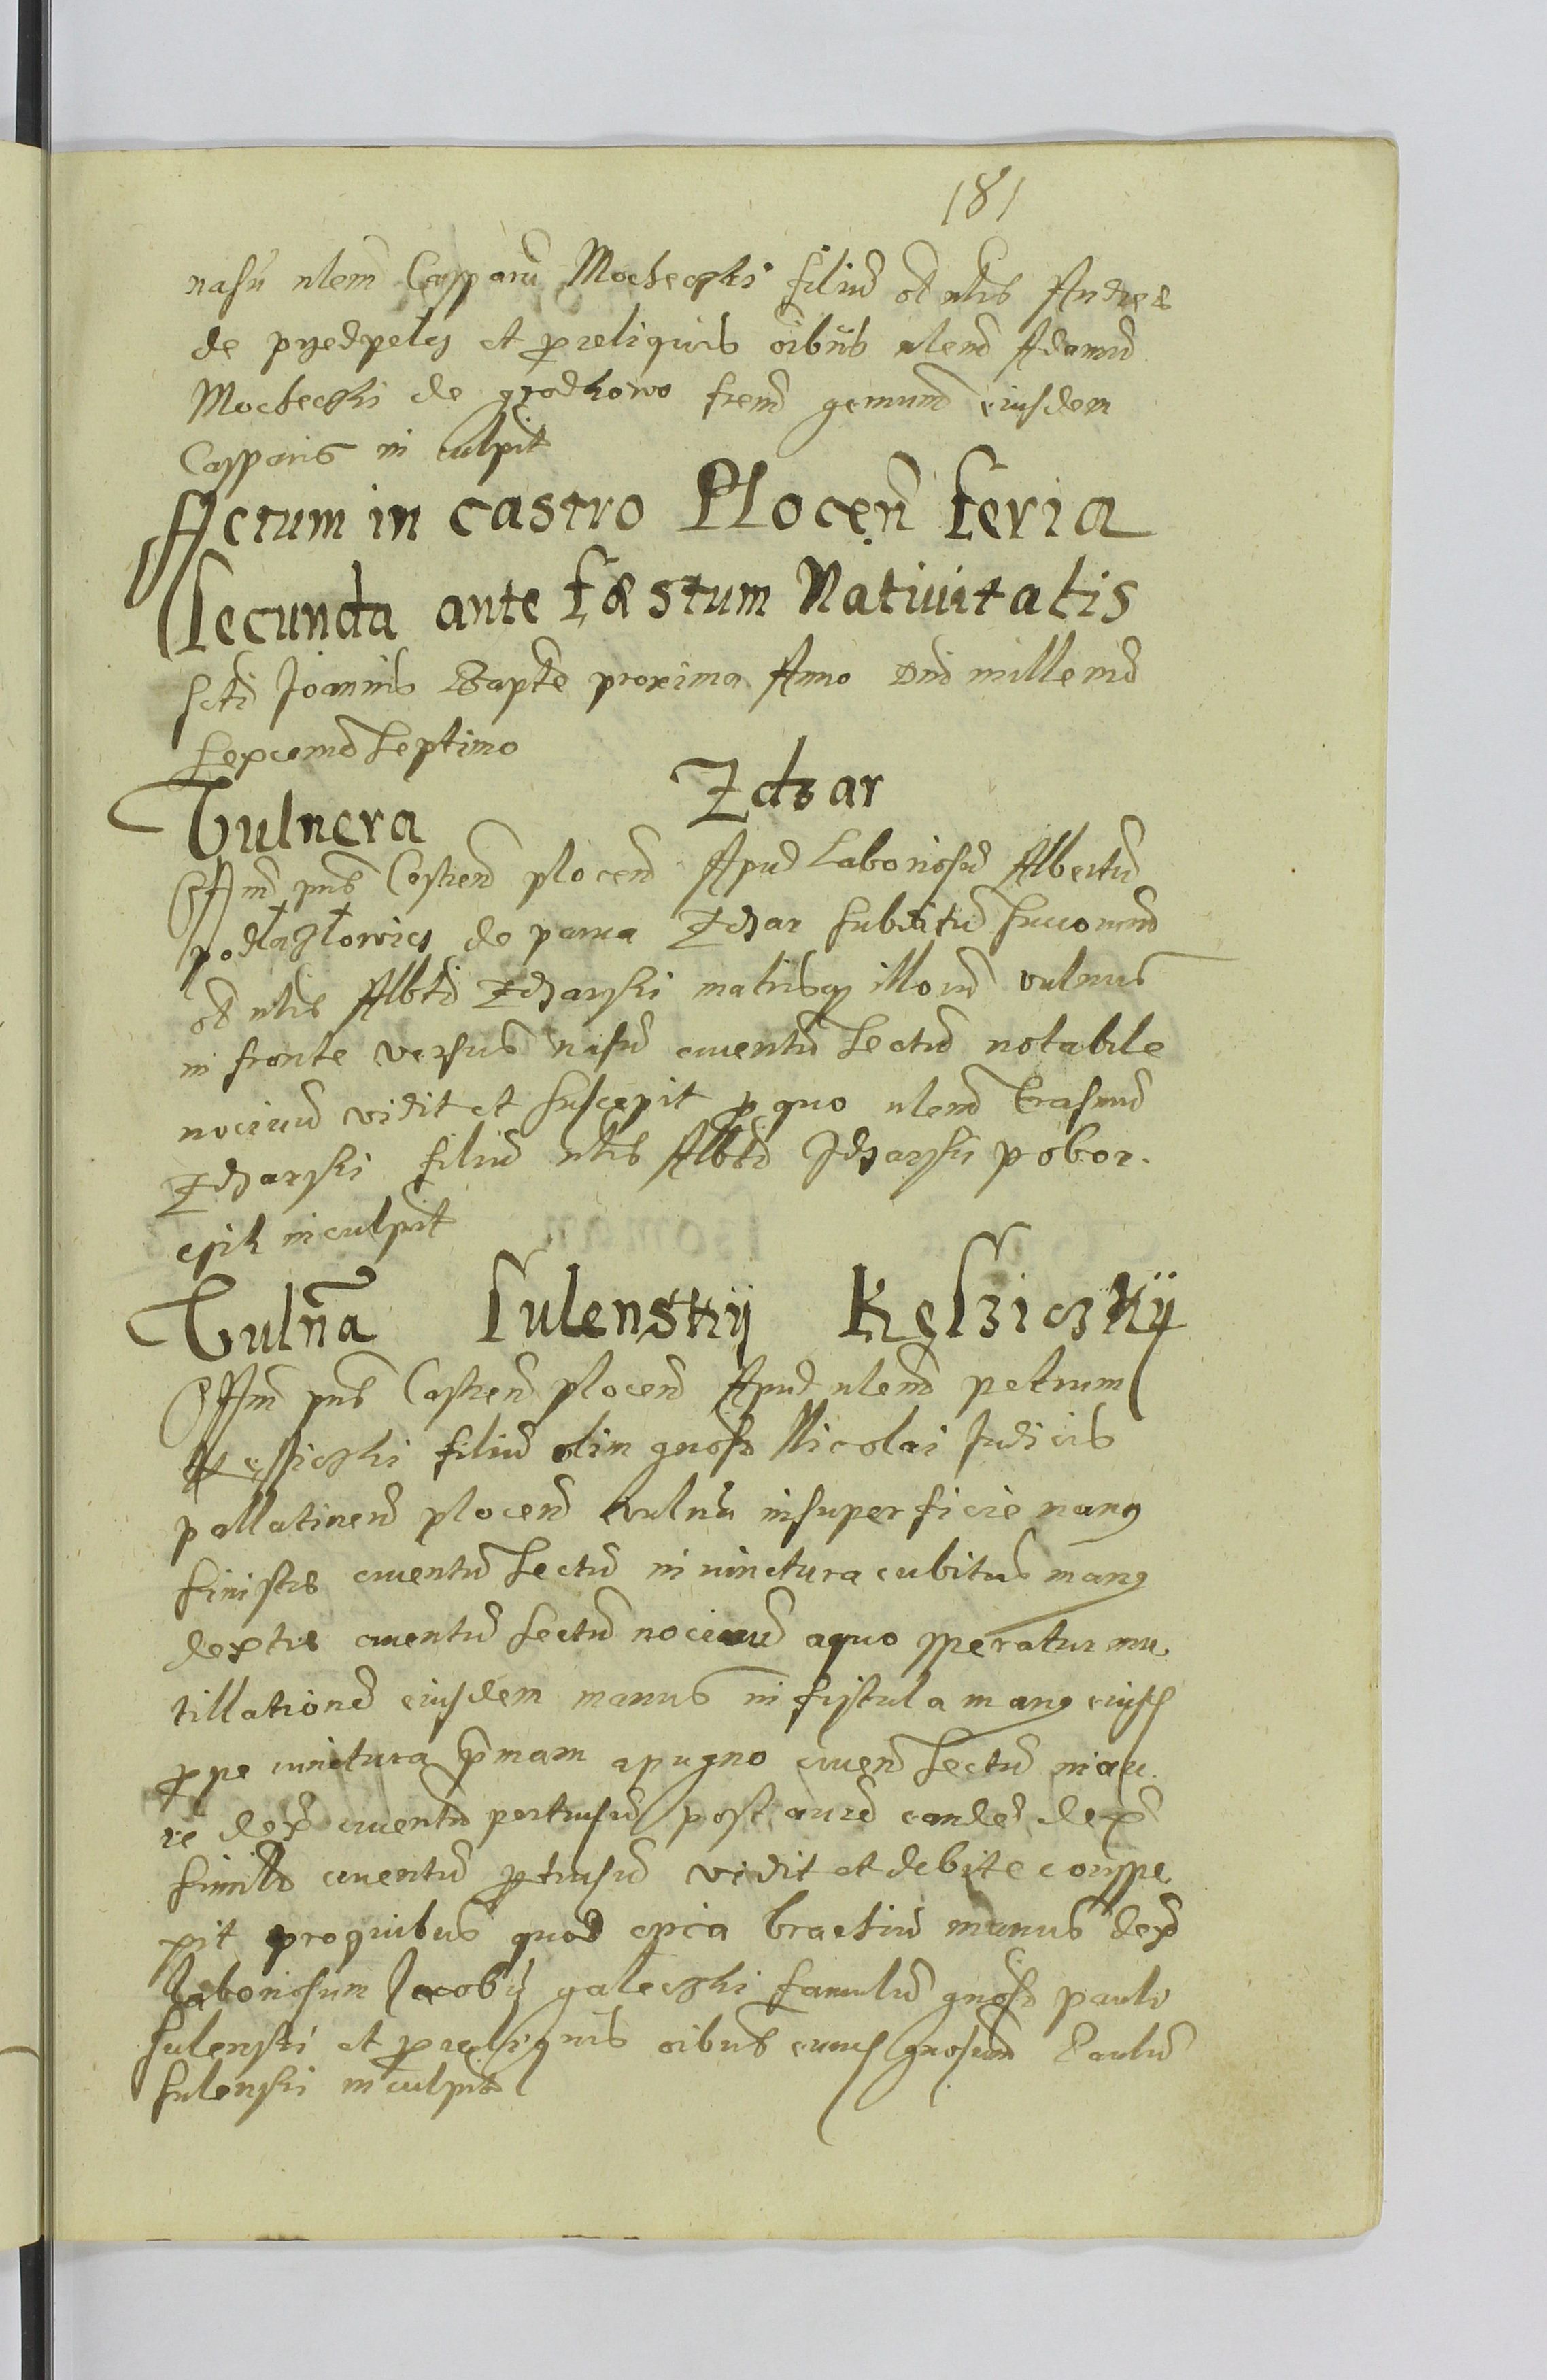 181
nasū nlem Casparū Mochecski filiū olim nlis Andree
de pyedpelcz et p reliquis oībus nlem Adamū
Mochecski de grodkowo frem germanū eiusdem
Casparis in culpit
Actum in castro Plocen̄ feria
secunda ante fæstum Natiuitatis
Scti Joannis Baptē proxima Anno Dnī millemo
sexcemo septimo
Vulnera Zdzar
Minrlis Castren plocen Apud Laboriosū Albertū
podlaszlowicz de parua Zdzar subditū
nlis Albti Zdzarski matrisq illorū vulnus
in fronte versus nasū cruentū sectū notabile
nociuū vidit et suscepit p quo nlem Erasmū
Zdzarski filiū nlis Albti Zdzarski pobor.
csik inculpit
Vuln̄a Sulenskij Kęssiczkij
Castren plocen Apud nlem petrum
Kęssicski filiū olim gnosi Nicolai Judicis
pallatinen plocen vulnus in superficie manus
sinistre cruentū sectū in iunctura cubitus manus
dextre cruentū sectū nociuū a quo speratur mu
tillationē eiusdem manus in fistula manus eiusd
prope iunctura primam a pugno cruen sectū in au
re dex cruentū pertusū post aurē eandē dex
similr cruentū ptusū vidit et debite conspe
xit pro quibus quod circa brachiū manus dex
laboriosum Jacobū galecski famulū gnosi pauli
sulenski et p reliquis oībus eund gnosum Paulū
sulenski inculpit